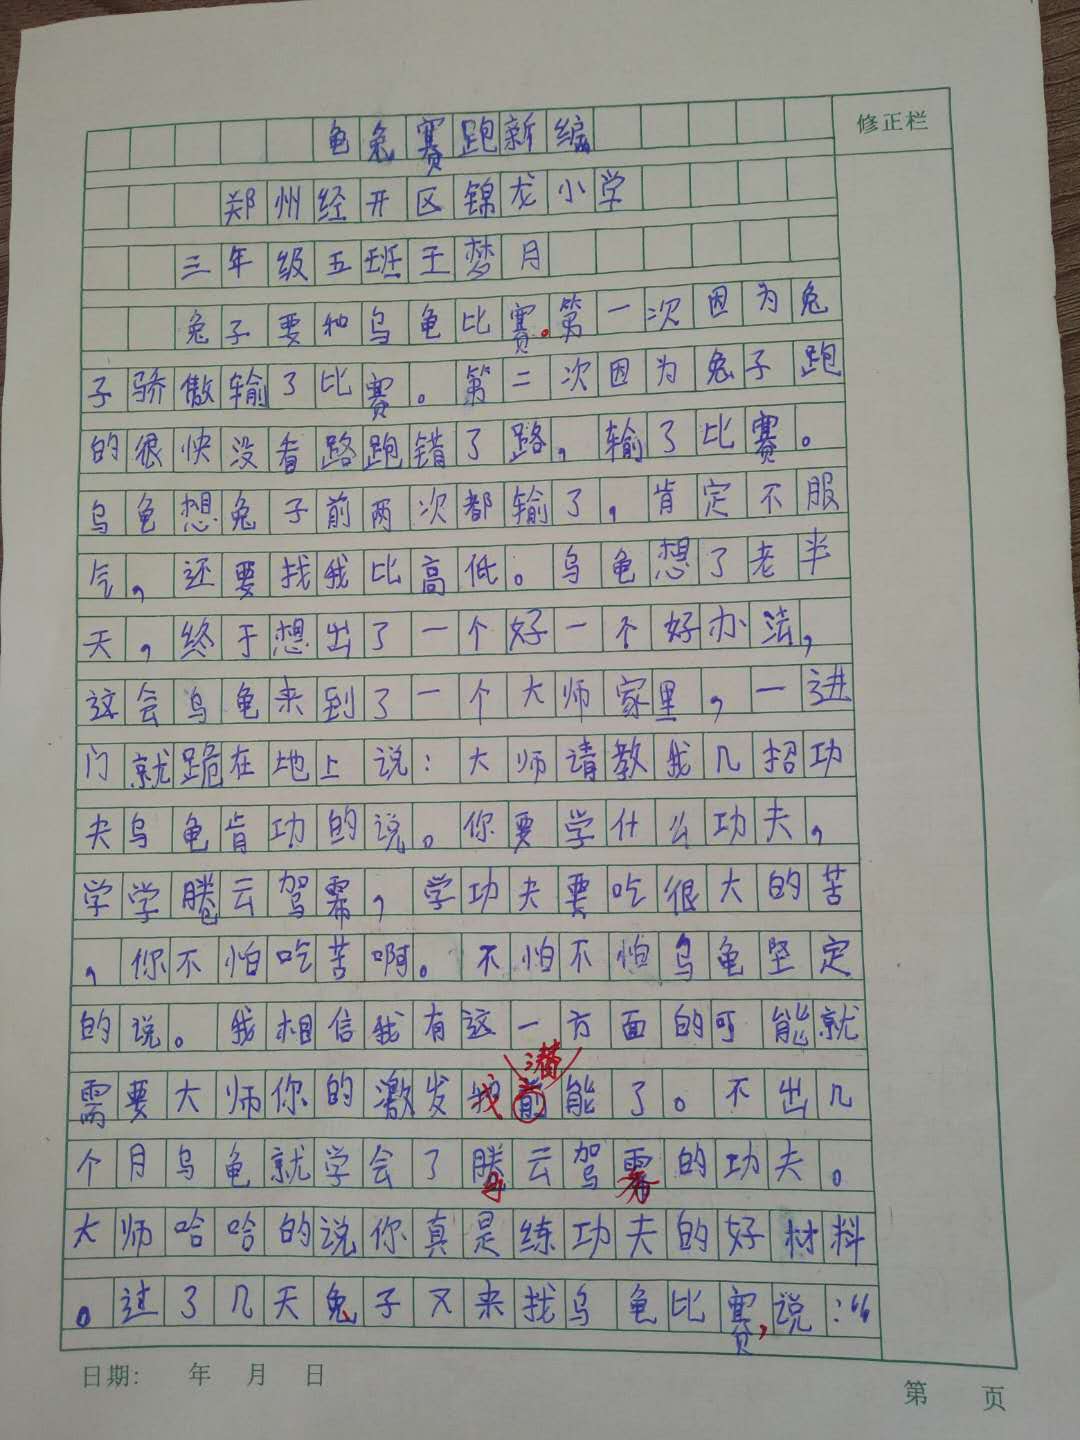 龟兔赛跑新编
修正栏
郑州经开区锦龙小学
三年级五班王梦月
兔子要和乌龟比赛。第一次因为兔
子骄傲输了比赛。第二次因为兔子跑
的很快没看路跑错了路，输了比赛。
乌龟想兔子前两次都输了，肯定不服
气，还要找我比高低。乌龟想了老半
天，终于想出了一个好一个好办法，
这会乌龟来到了一个大师家里，一进
门就跪在地上说：大师请教我几招功
夫乌龟肯功的说。你要学什么功夫，
学学腾云驾雾，学功夫要吃很大的苦
，你不怕吃苦啊。不怕不怕乌龟坚定
的说。我相信我有这一方面的可能就
潜
需要大师你的激发我前能了。不出几
个月乌龟就学会了腾云驾雾的功夫。
大师哈哈的说你真是练功夫的好材料
。过了几天兔子又来找乌龟比赛，说：“
日期： 年 月 日
第 页